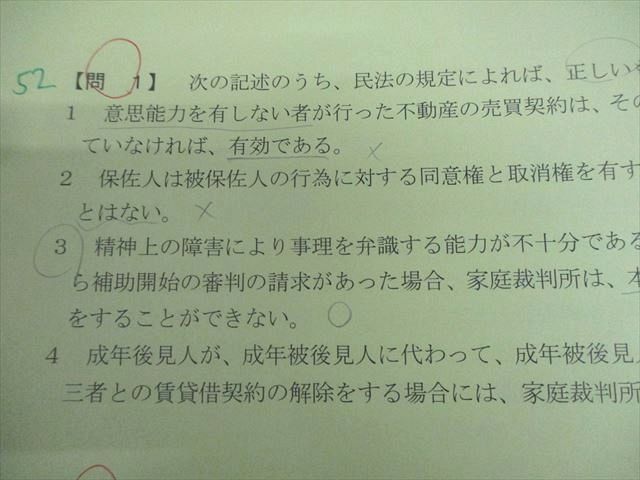 52 【問 1】 次の記述のうち、民法の規定によれば、正しい
1 意思能力を有しない者が行った不動産の売買契約は、その
ていなければ、有効である。 ×
2 保佐人は被保佐人の行為に対する同意権と取消権を有す
とはない。 ×
3 精神上の障害により事理を弁識する能力が不十分である
ら補助開始の審判の請求があった場合、家庭裁判所は、本
をすることができない。 ○
4 成年後見人が、成年被後見人に代わって、成年被後見
三者との賃貸借契約の解除をする場合には、家庭裁判所